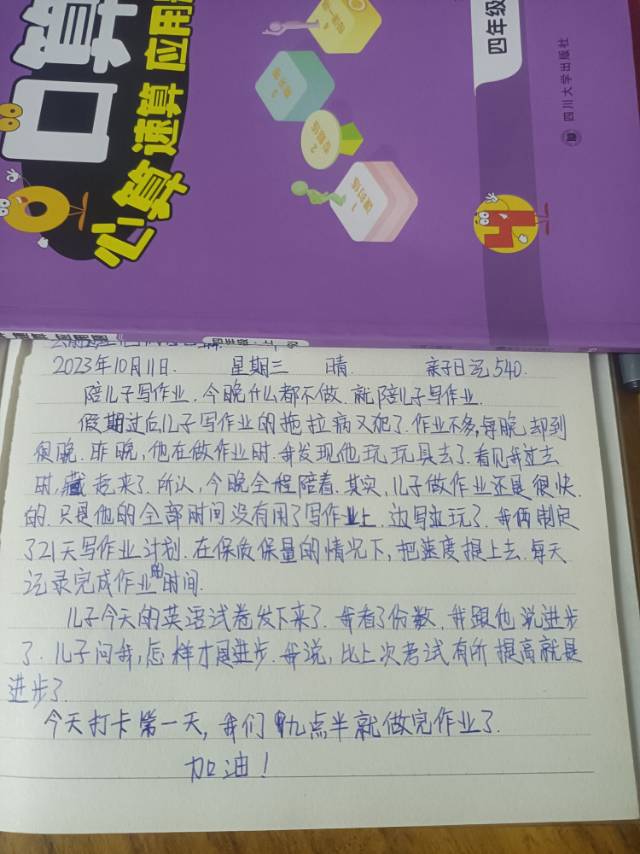 口算
心算 速算 应用
四年级
四川大学出版社
2023年10月11日. 星期三 晴. 亲子日记540.
陪儿子写作业. 今晚什么都不做. 就陪儿子写作业.
假期过后儿子写作业的拖拉病又犯了. 作业不多, 每晚却到
很晚. 昨晚, 他在做作业时. 我发现他玩玩具去了. 看见我过去
时, 藏起来了. 所认, 今晚全程陪着. 其实, 儿子做作业还是很快
的. 只是他的全部时间没有用了写作业上. 边写边玩了. 我俩制定
了21天写作业计划. 在保质保量的情况下, 把速度提上去. 每天
记录完成作业的时间.
儿子今天的英语试卷发下来了. 我看了份数. 我跟他说进步
了. 儿子问我, 怎样才是进步. 我说, 比上次考试有所提高就是
进步了.
今天打卡第一天, 我们九点半就做完作业了.
加油!